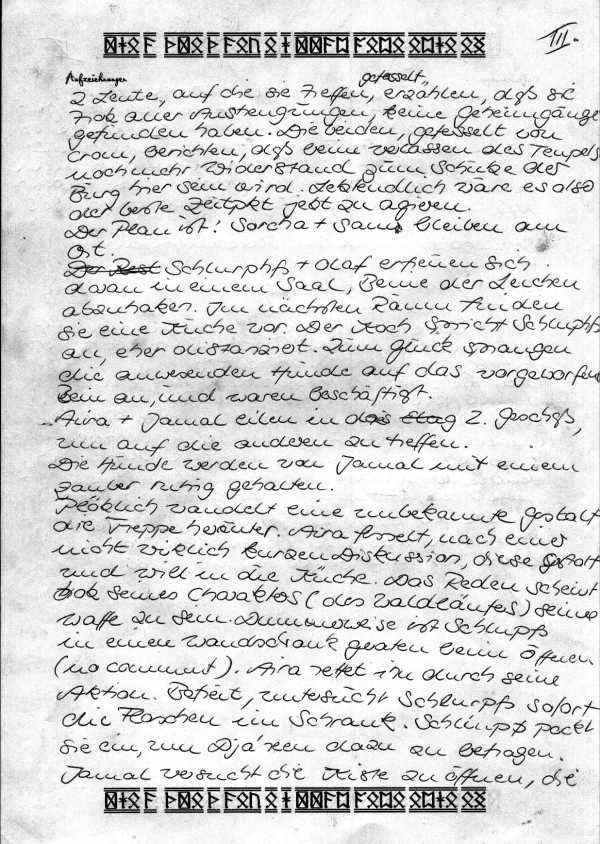 III.
Aufzeichnungen
gefesselt
2 Leute, auf die sie treffen, erzählen, daß sie
trotz aller Anstrengungen, keine Geheimgänge
gefunden haben. Die beiden, gefesselt von
Crom, berichten, daß beim verlassen des Tempels
noch mehr Widerstand zum Schutze der
Burg hier sein wird. Letztendlich wäre es also
der beste Zeitpkt jetzt zu agieren.
Der Plan ist: Sorcha + Sam bleiben am
Ort.
Der Rest Schlurphß + Olaf erfreuen sich
daran in einem Saal, Beine der Leichen
abzuhaken. Im nächsten Raum finden
sie eine Küche vor. Der Koch spricht Schlurphß
an, eher distanziert. Zum Glück sprangen
die anwesenden Hunde auf das vorgeworfene
Bein an, und waren beschäftigt.
Aira + Jamal eilen in das 2. Geschoß,
um auf die anderen zu treffen.
Die Hunde werden von Jamal mit einem
Zauber ruhig gehalten.
Plötzlich wandelt eine unbekannte Gestalt
die Treppe herunter. Aira fesselt, nach einer
nicht wirklich kurzen Diskussion, diese Gestalt
und will in die Küche. Das Reden scheint
trotz seines Charakters (des Waldläufers) seine
Waffe zu sein. Dummerweise ist Schlurpß
in einen Wandschrank geraten beim öffnen
(no comment). Aira rettet ihn durch seine
Aktion. Befreit, untersucht Schlurpß sofort
die Flaschen im Schrank. Schlurpß packt
sie ein, um Djáren dazu zu befragen.
Jamal versucht die Kiste zu öffnen, die